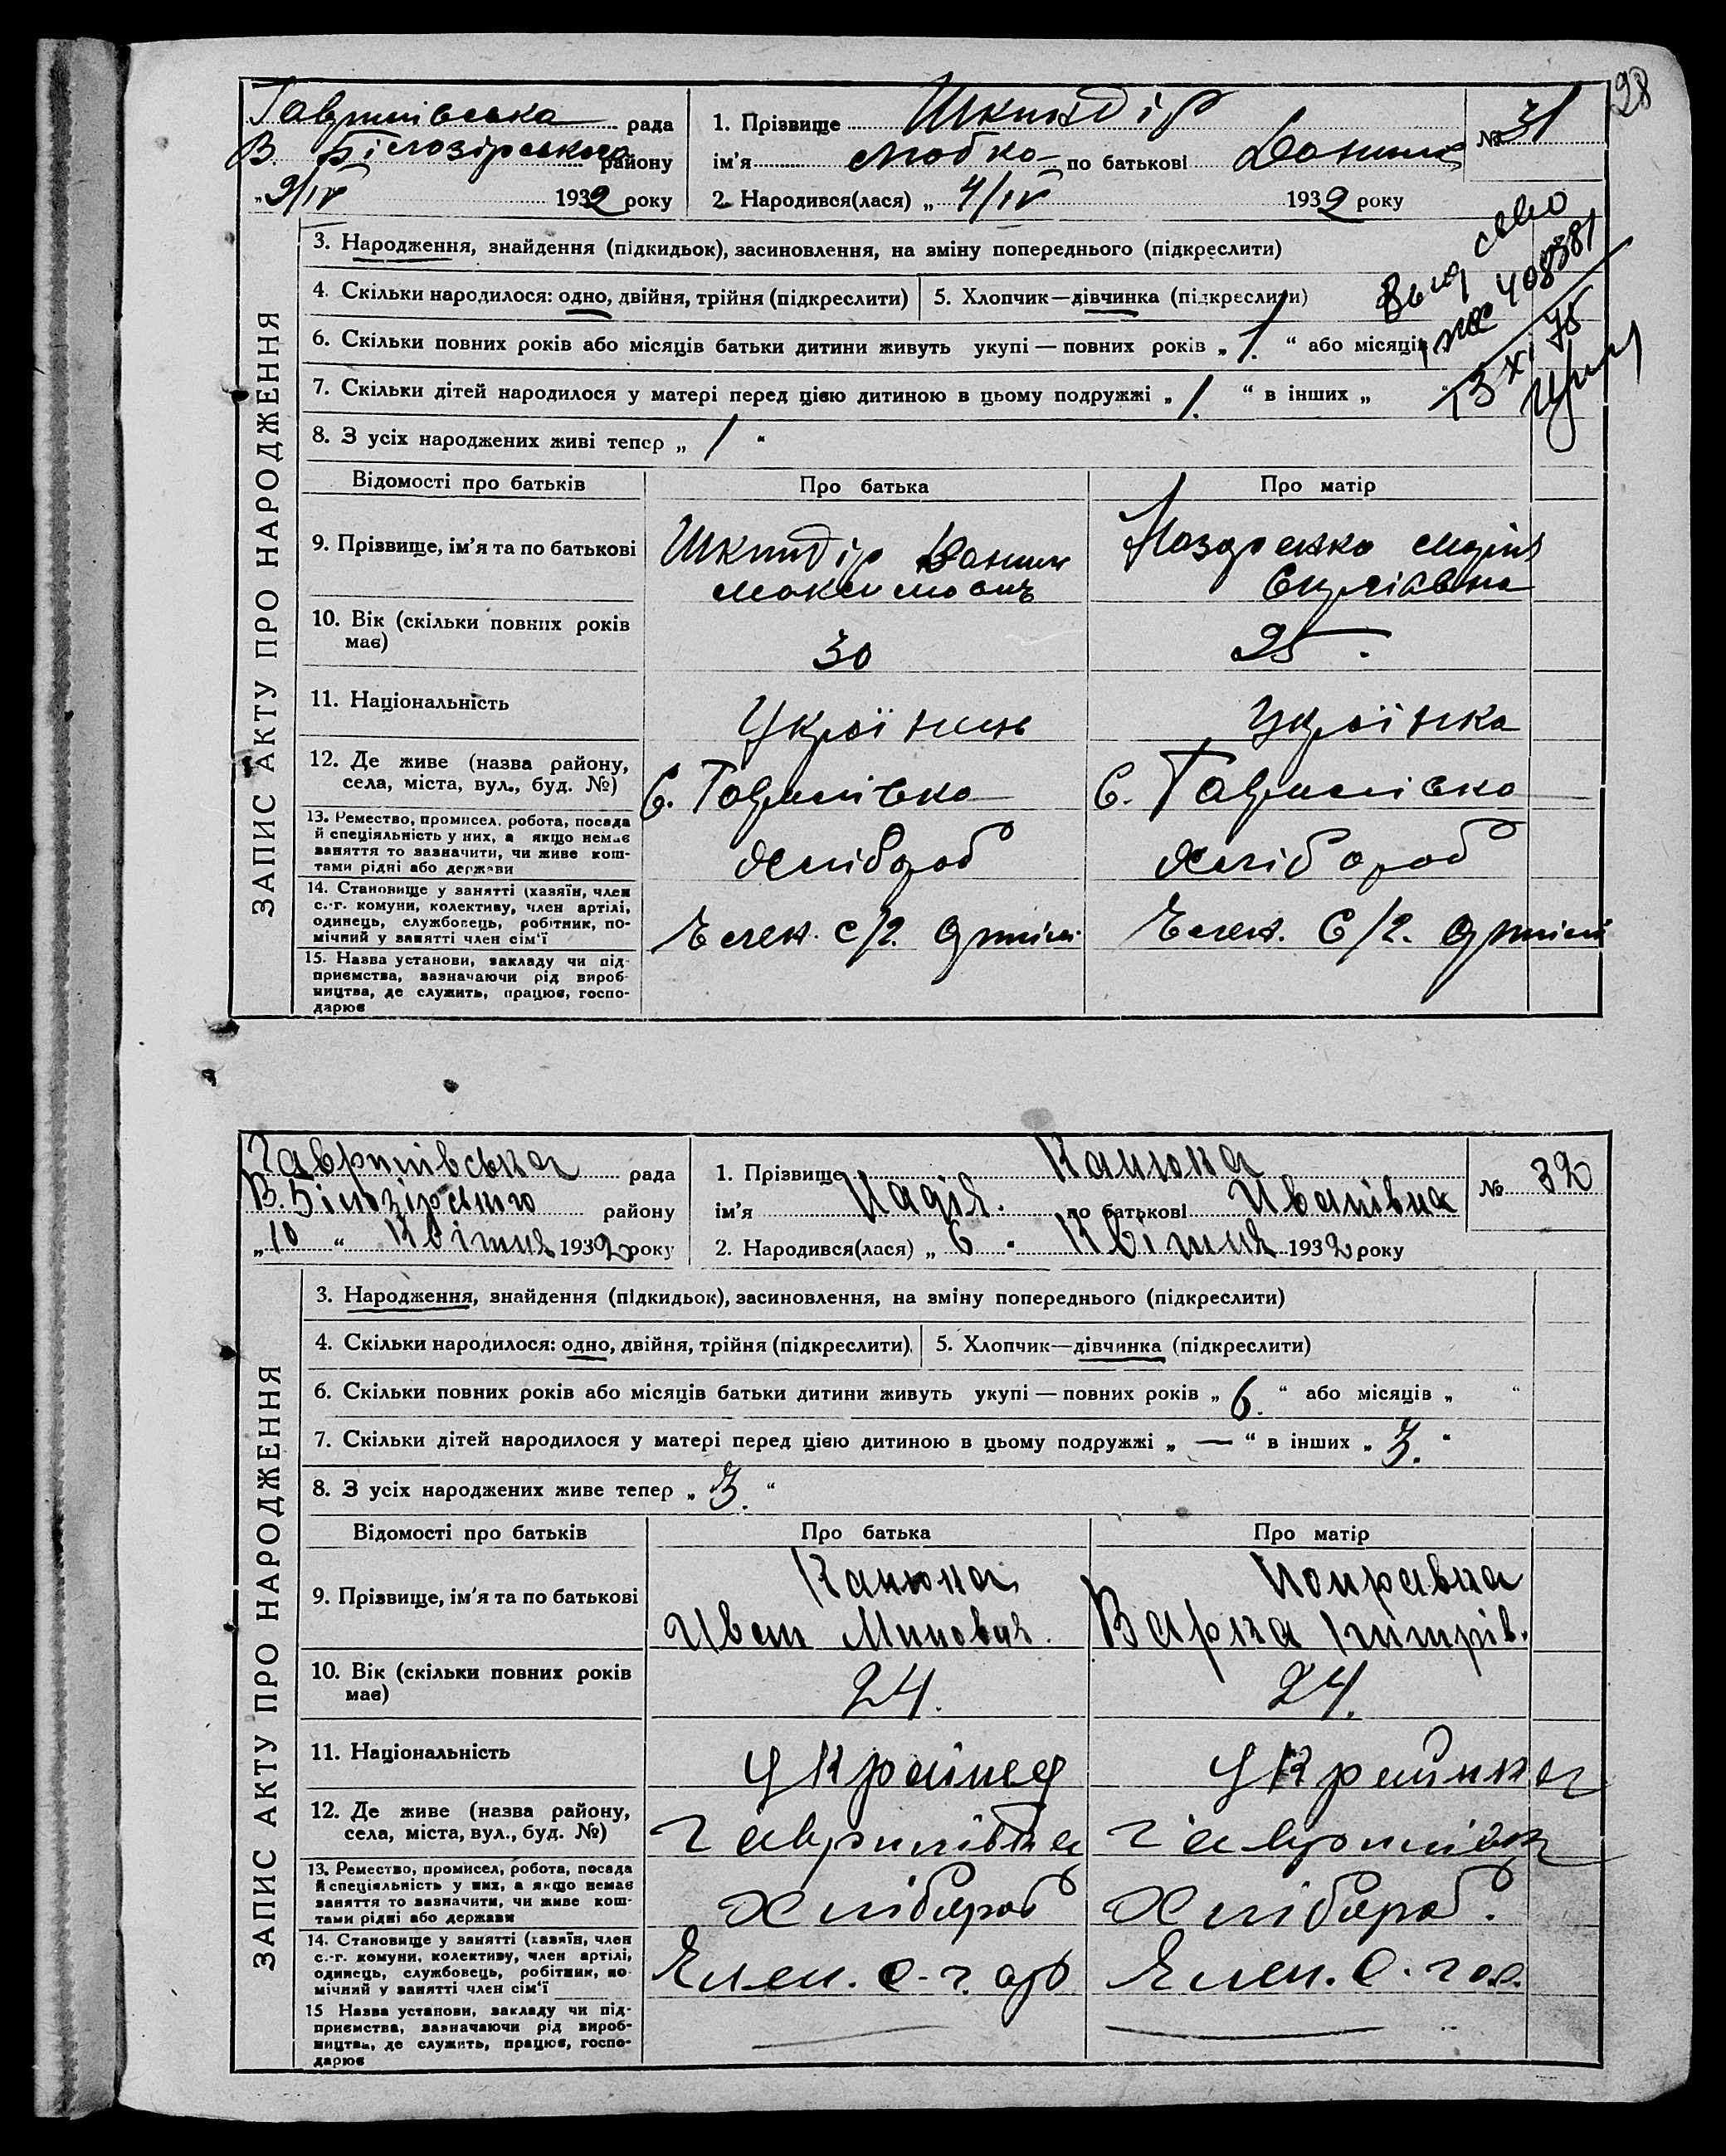 28
Гаврилівська рада
В. Білозірського району
„9/IV 1932 року
1. Прізвище Шкиндір
ім’я Любка по батькові Данил
2. Народився(лася) „ 4/IV 1932 року
№ 31
3. Народження, знайдення (підкидьок), засиновлення, на зміну попереднього (підкреслити)
4. Скільки народилося: одно, двійня, трійня (підкреслити)
5. Хлопчик—дівчинка (підкреслити)
6. Скільки повних років або місяців батьки дитини живуть укупі — повних років „ 1. “ або місяців
7. Скільки дітей народилося у матері перед цією дитиною в цьому подружжі „ 1. “ в інших „ “
8. З усіх народжених живі тепер „ 1 “
Выд св-во
408381
13 XI 75
ЗАПИС АКТУ ПРО НАРОДЖЕННЯ
Відомості про батьків
Про батька
Про матір
9. Прізвище, ім’я та по батькові
Шкиндір Данил
Максимович
Назаренко Марія
10. Вік (скільки повних років
має)
30
25.
11. Національність
Українець
Українка
12. Де живе (назва району,
села, міста, вул., буд. №)
С. Гаврилівка
С. Гаврилівка
13. Ремество, промисел, робота, посада
й спеціяльність у них, а якщо немає
заняття то зазначити, чи живе кош-
тами рідні або держави
Хлібороб
Хлібороб
14. Становище у занятті (хазяїн, член
с.-г. комуни, колективу, член артілі,
одинець, службовець, робітник, по-
мічний у занятті член сім’ї
Член. с/г. артілі
Член. с/г. артілі
15. Назва установи, закладу чи під-
приємства, зазначаючи рід вироб-
ництва, де служить, працює, госпо-
дарює
Гаврилівська рада
В. Білозірського району
„10“ Квітня 1932 року
1. Прізвище Канюка
ім’я Надія. по батькові Иванівна
2. Народився(лася) „ 6 “ Квітня 1932 року
№ 32
3. Народження, знайдення (підкидьок), засиновлення, на зміну попереднього (підкреслити)
4. Скільки народилося: одно, двійня, трійня (підкреслити)
5. Хлопчик—дівчинка (підкреслити)
6. Скільки повних років або місяців батьки дитини живуть укупі — повних років „ 6. “ або місяців „ “
7. Скільки дітей народилося у матері перед цією дитиною в цьому подружжі „ — “ в інших „ 3. “
8. З усіх народжених живе тепер „ 3. “
ЗАПИС АКТУ ПРО НАРОДЖЕННЯ
Відомості про батьків
Про батька
Про матір
9. Прізвище, ім’я та по батькові
Канюка
Иван Минович.
Поправка
Варка
10. Вік (скільки повних років
має)
24.
24.
11. Національність
Українец
Українка
12. Де живе (назва району,
села, міста, вул., буд. №)
Гаврилівка
Гаврилівка
13. Ремество, промисел, робота, посада
й спеціяльність у них, а якщо немає
заняття то зазначити, чи живе кош-
тами рідні або держави
Хлібороб
Хлібороб.
14. Становище у занятті (хазяїн, член
с.-г. комуни, колективу, член артілі,
одинець, службовець, робітник, по-
мічний у занятті член сім’ї
Член. с.-г. ар
Член. с. г.
15 Назва установи, закладу чи під-
приємства, зазначаючи рід вироб-
ництва, де служить, працює, госпо-
дарює